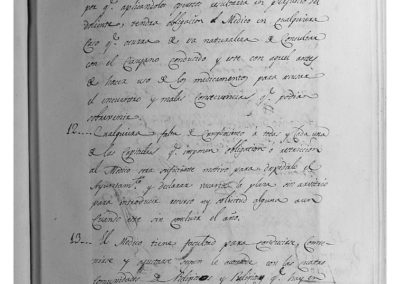 por qᵉ aplicandolos resulta en perjuicio del
doliente, tendra obligacion el Medico en cualquiera
Caso qᵉ ocurra de va naturaleza de Consultar
con el Cirujano conducido y este con aquel antes
de hacer uso de los medicamentos para evitar
el encuentro y malas Consecuencias qᵉ podrian
sobrevenir.
12.... Cualquiera falta de Cumplimiento a todas y Cada una
de las Capitulas qᵉ imponen obligacion ó restriccion
al Medico sera suficiente motivo para despedirle el
Ayuntamᵗᵒ y declarar vacante la plaza sin arbitrio
para introducir recurso ni solicitud alguna aun
Cuando este sin concluir el año.
13... El Medico tiene facultad para conducirse, Conve
nirse y ajustarse segun le acomode con las Cuatro
Comunidades de Religiosos y Religiosas qᵉ hay en